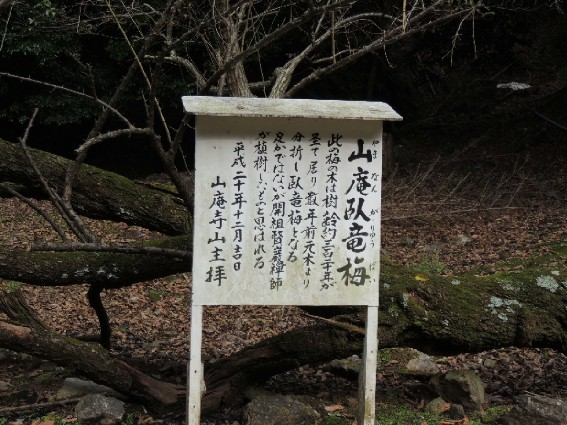 山庵臥竜梅
やまなんがりゅうばい
此の梅の木は樹齢約三百二十年が
至て居り数年前元木より
分折し臥竜梅となる
定かではないが開組智巌禅師
が植樹したものと思はれる
平成二十年十二月吉日
山庵寺山主拝